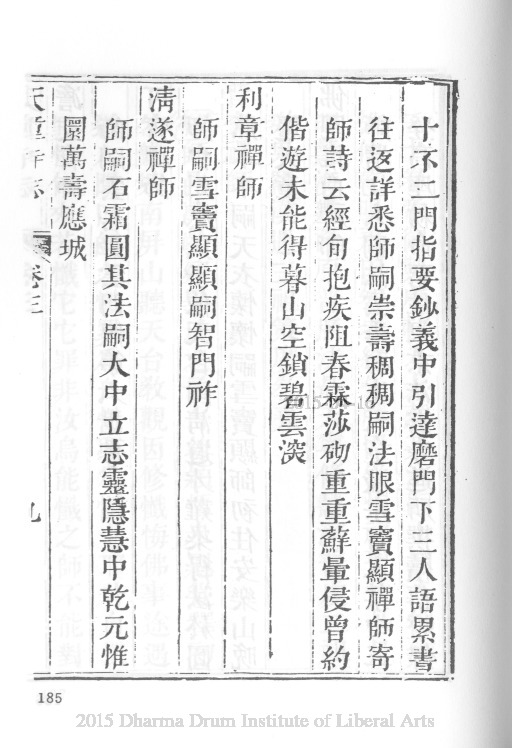 十不二門指要鈔義中引達磨門下三人語累書
往返詳悉師嗣崇壽稠稠嗣法眼雪竇顯禪師寄
師詩云經旬抱疾阻春霖莎砌重重蘚暈侵曾約
偕遊未能得暮山空鎖碧雲深
利章禪師
師嗣雪竇顯顯嗣智門祚
清遂禪師
師嗣石霜圓其法嗣大中立志靈隱慧中乾元惟
圜萬壽應城
天童寺志 卷三 九
185
2015 Dharma Drum Institute of Liberal Arts